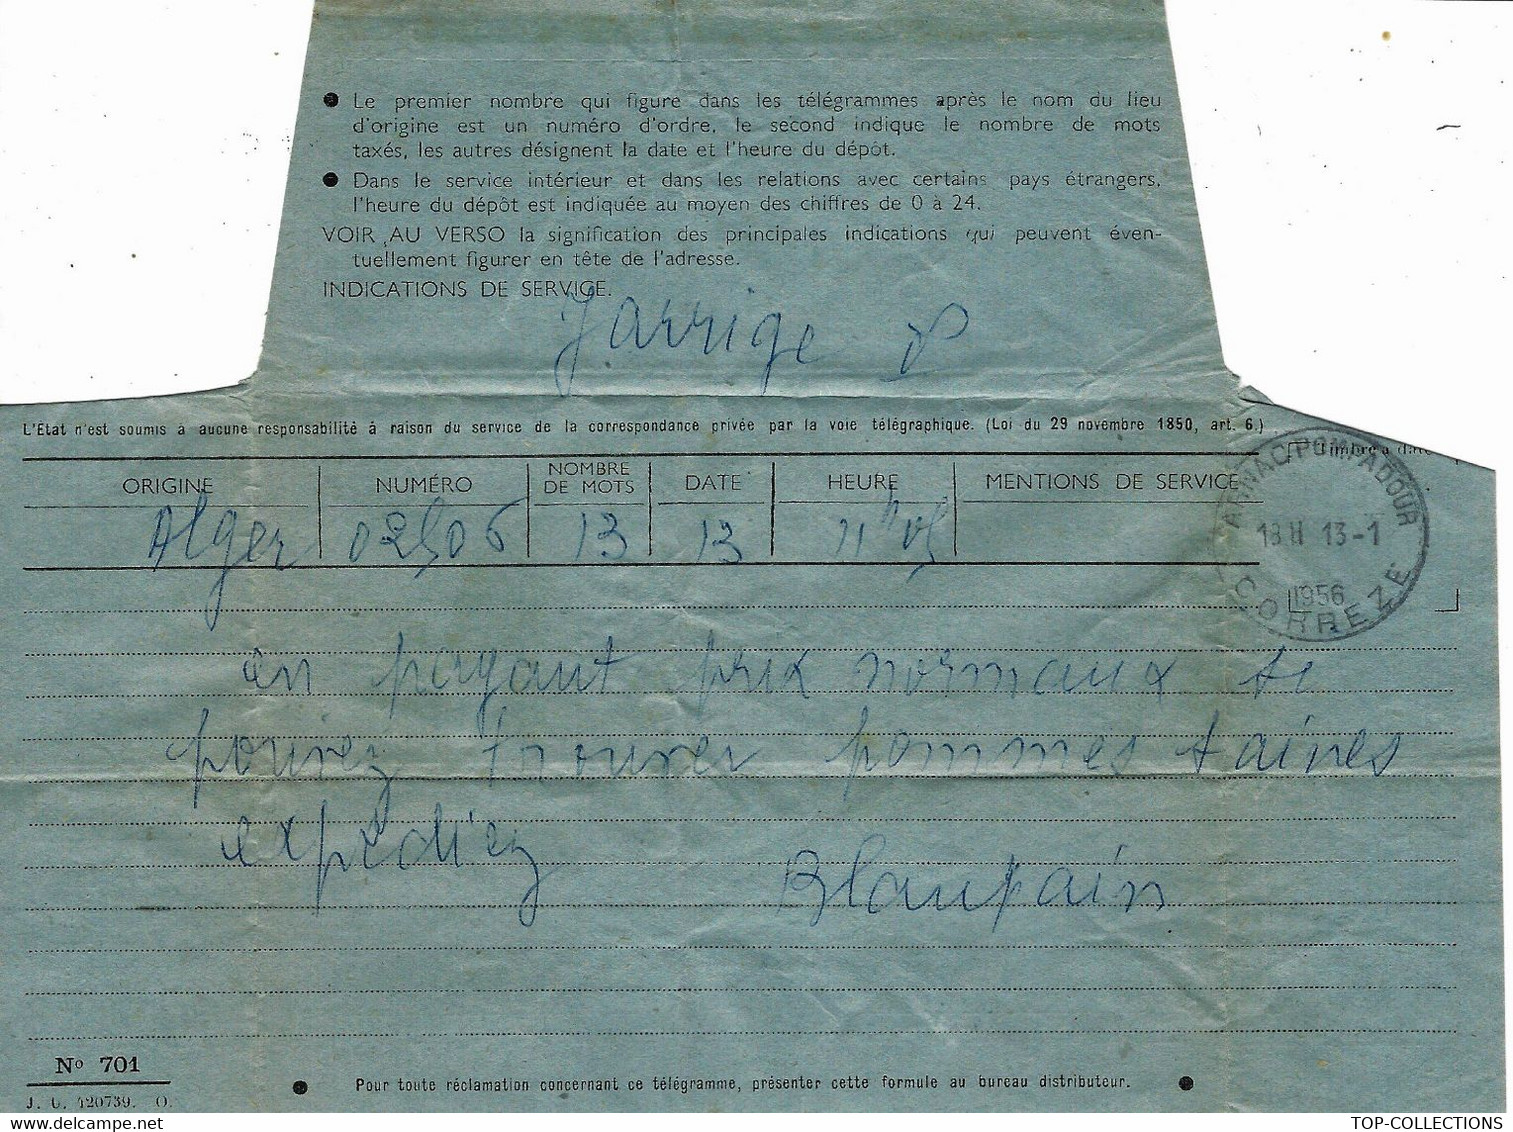 ● Le premier nombre qui figure dans les télégrammes après le nom du lieu
d'origine est un numéro d'ordre, le second indique le nombre de mots
taxés, les autres désignent la date et l'heure du dépôt.
● Dans le service intérieur et dans les relations avec certains pays étrangers,
l'heure du dépôt est indiquée au moyen des chiffres de 0 à 24.
VOIR AU VERSO la signification des principales indications qui peuvent éven-
tuellement figurer en tête de l'adresse.
INDICATIONS DE SERVICE.
Jarrige
L'Etat n'est soumis à aucune responsabilité à raison du service de la correspondance privée par la voie télégraphique. (Loi du 29 novembre 1850, art. 6.)
Timbre à date
ORIGINE NUMÉRO NOMBRE DE MOTS DATE HEURE MENTIONS DE SERVICE
Alger 02506 13 13 11h05
ARNAC POMPADOUR
18H 13-1
1956
CORREZE
en payant prix normaux si
pouvez trouver pommes saines
expédiez Blaupain
Nº 701
J. U. 420739. O.
● Pour toute réclamation concernant ce télégramme, présenter cette formule au bureau distributeur. ●
TOP-COLLECTIONS